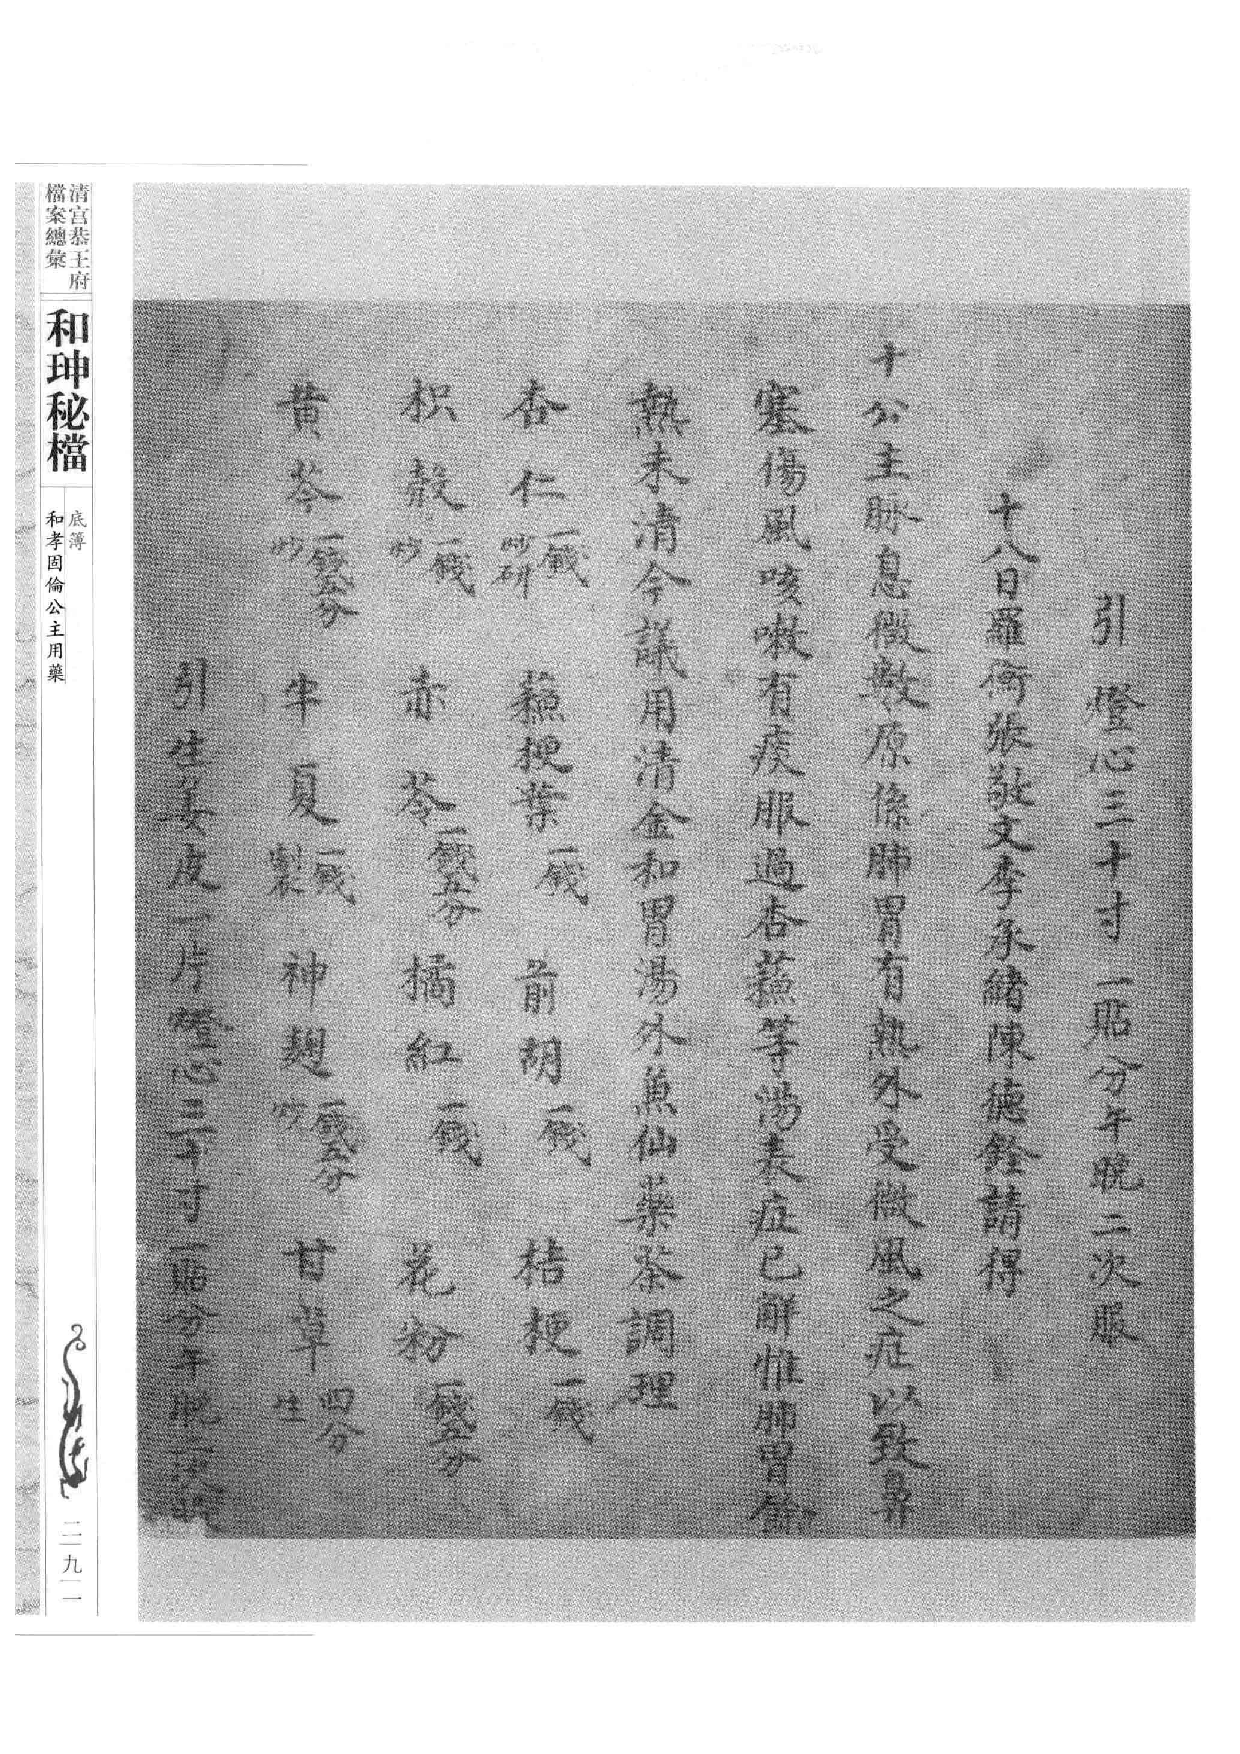 引燈心三十寸一貼分午晚二次服
十八日羅衡張敬文李承緒陳德銓請得
十公主脉息微數原係肺胃有熱外受微風之症以致鼻
塞傷風咳嗽有痰服過杏蘓等湯表症已解惟肺胃餘
熱未清今議用清金和胃湯外煎仙藥茶調理
杏仁一錢炒研 蘓梗葉一錢 前胡一錢 桔梗一錢
枳殼一錢炒 赤苓一錢五分 橘紅一錢 花粉一錢五分
黄芩一錢五分炒 半夏一錢製 神麯一錢五分炒 甘草四分生
引生姜皮一片燈心三十寸一貼分午晚二次服
清宮恭王府
檔案總彙
和珅秘檔
底簿
和孝固倫公主用藥
二九一